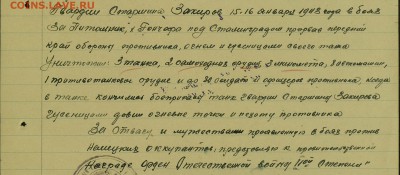 COINS.LAV.RU
Гвардии Старшина Захиров 15-16 января 1943 года в боях
За Питомник, г Гончара под Сталинградом прорвав передний
Край обороны противника, огнем и гусеницами своего танка
Уничтожил: 3 танка, 2 самоходных орудия, 2 миномета,
1 противотанковое орудие и до 30 солдат и офицеров противника, когда
в танке кончились боеприпасы танк гвардии Старшины Захирова
Гусеницами давил огневые точки и пехоту противника
За отвагу и мужество проявленную в боях против
Немецких оккупантов, представляю к правительственной
Награде орден Отечественной войны степени